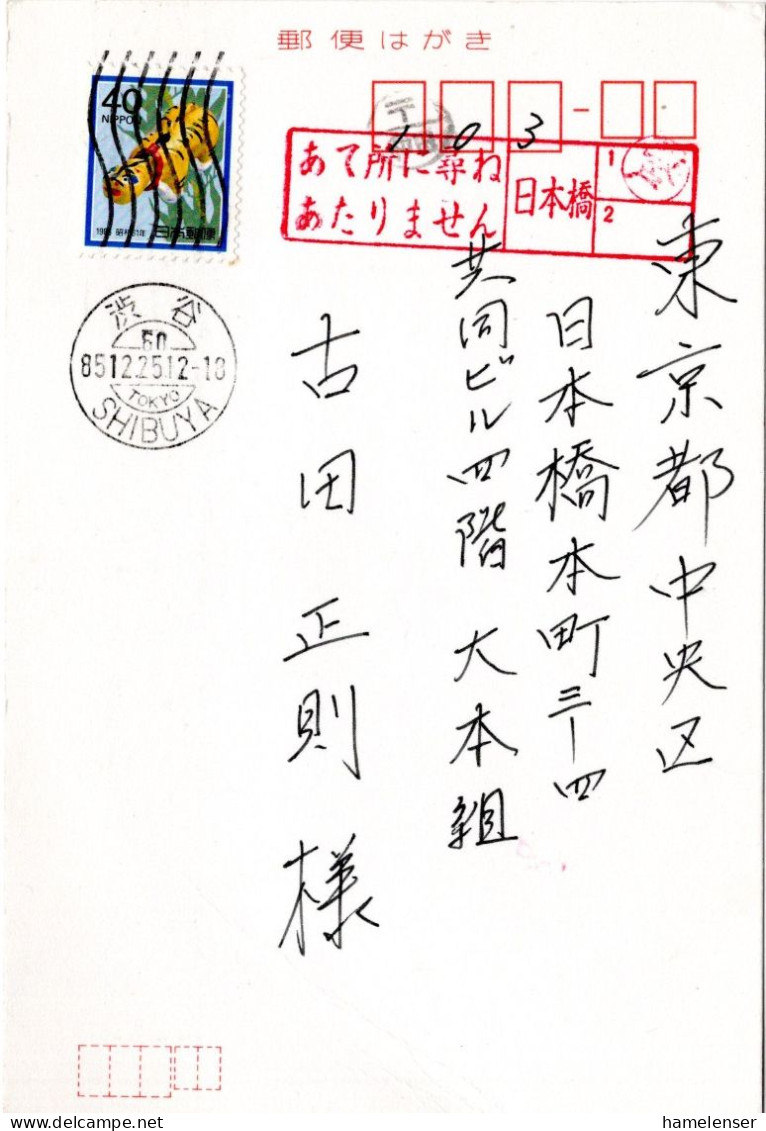 郵便はがき
40
NIPPON
昭和61年
日本郵便
103
あて所に尋ね
あたりません
日本橋
1
2
渋谷
85 12.25 12-18
TOKYO
SHIBUYA
東京都中央区
日本橋本町三ー四
共同ビル四階 大本組
古田正則様
hamelenser